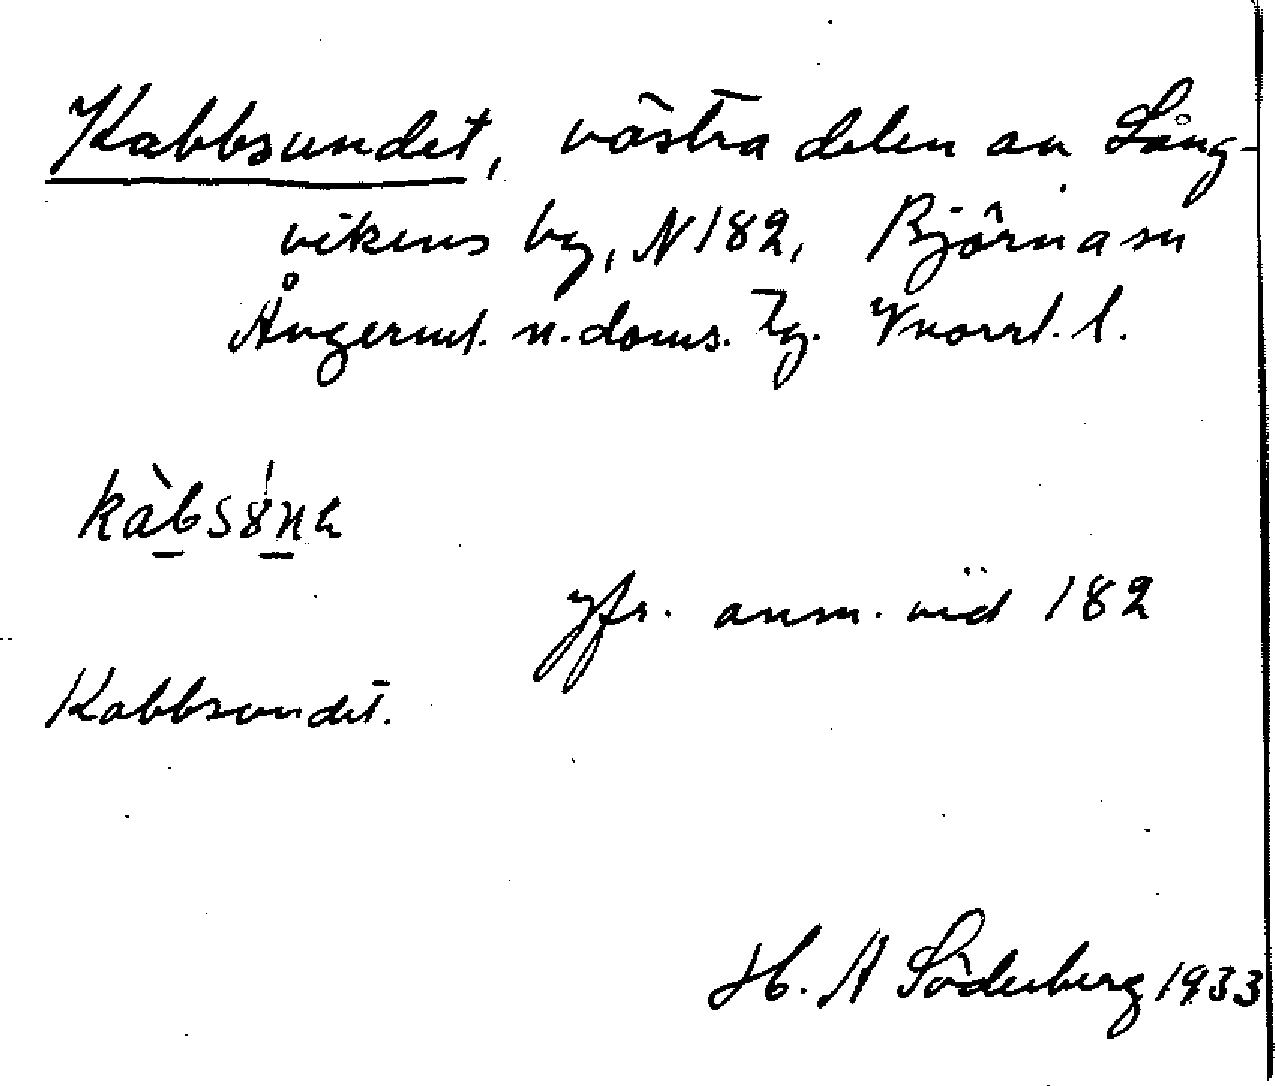 Kabbsundet, västra delen av Lång-
vikens by, N 182, Björna sn
Ångerml. n. doms. Tg. Vnorrl. l.
kàbsu̇nε
jfr. anm. vid 182
Kabbsundet.
H. A Söderberg 1933